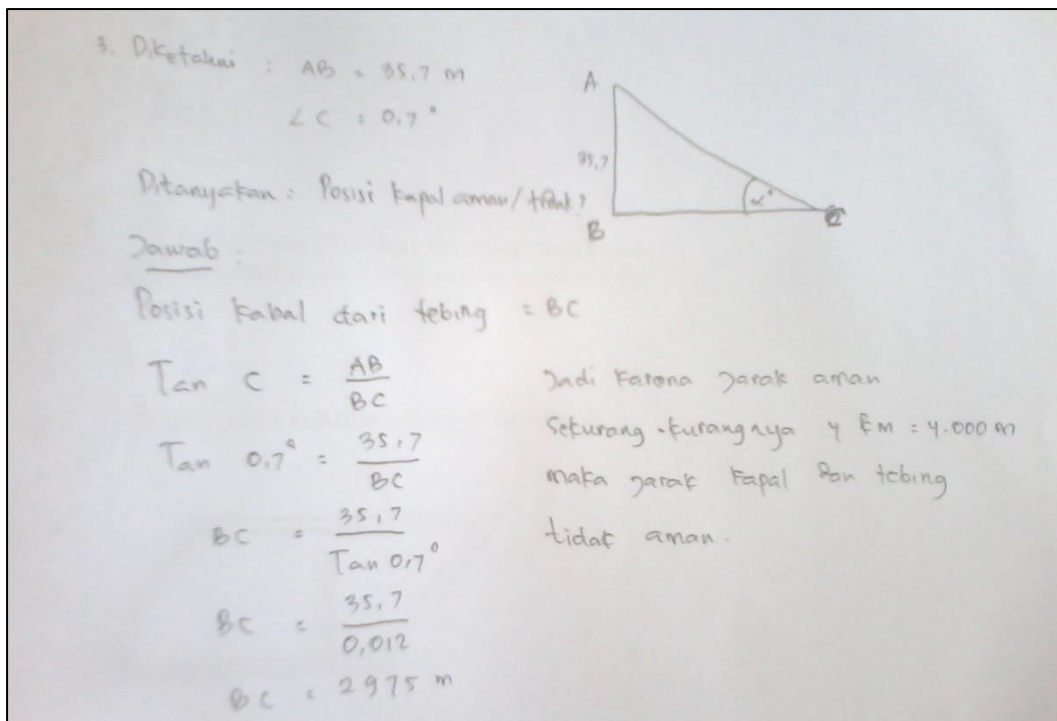 3. Diketahui : AB = 35,7 m
∠C = 0,7°
A
35,7
B
α°
C
Ditanyakan : Posisi kapal aman/tidak?
Jawab :
Posisi kabal dari tebing = BC
Tan C = AB / BC
Tan 0,7° = 35,7 / BC
BC = 35,7 / Tan 0,7°
BC = 35,7 / 0,012
BC = 2975 m
Jadi karena jarak aman
sekurang-kurangnya 4 km = 4.000 m
maka jarak kapal dan tebing
tidak aman.